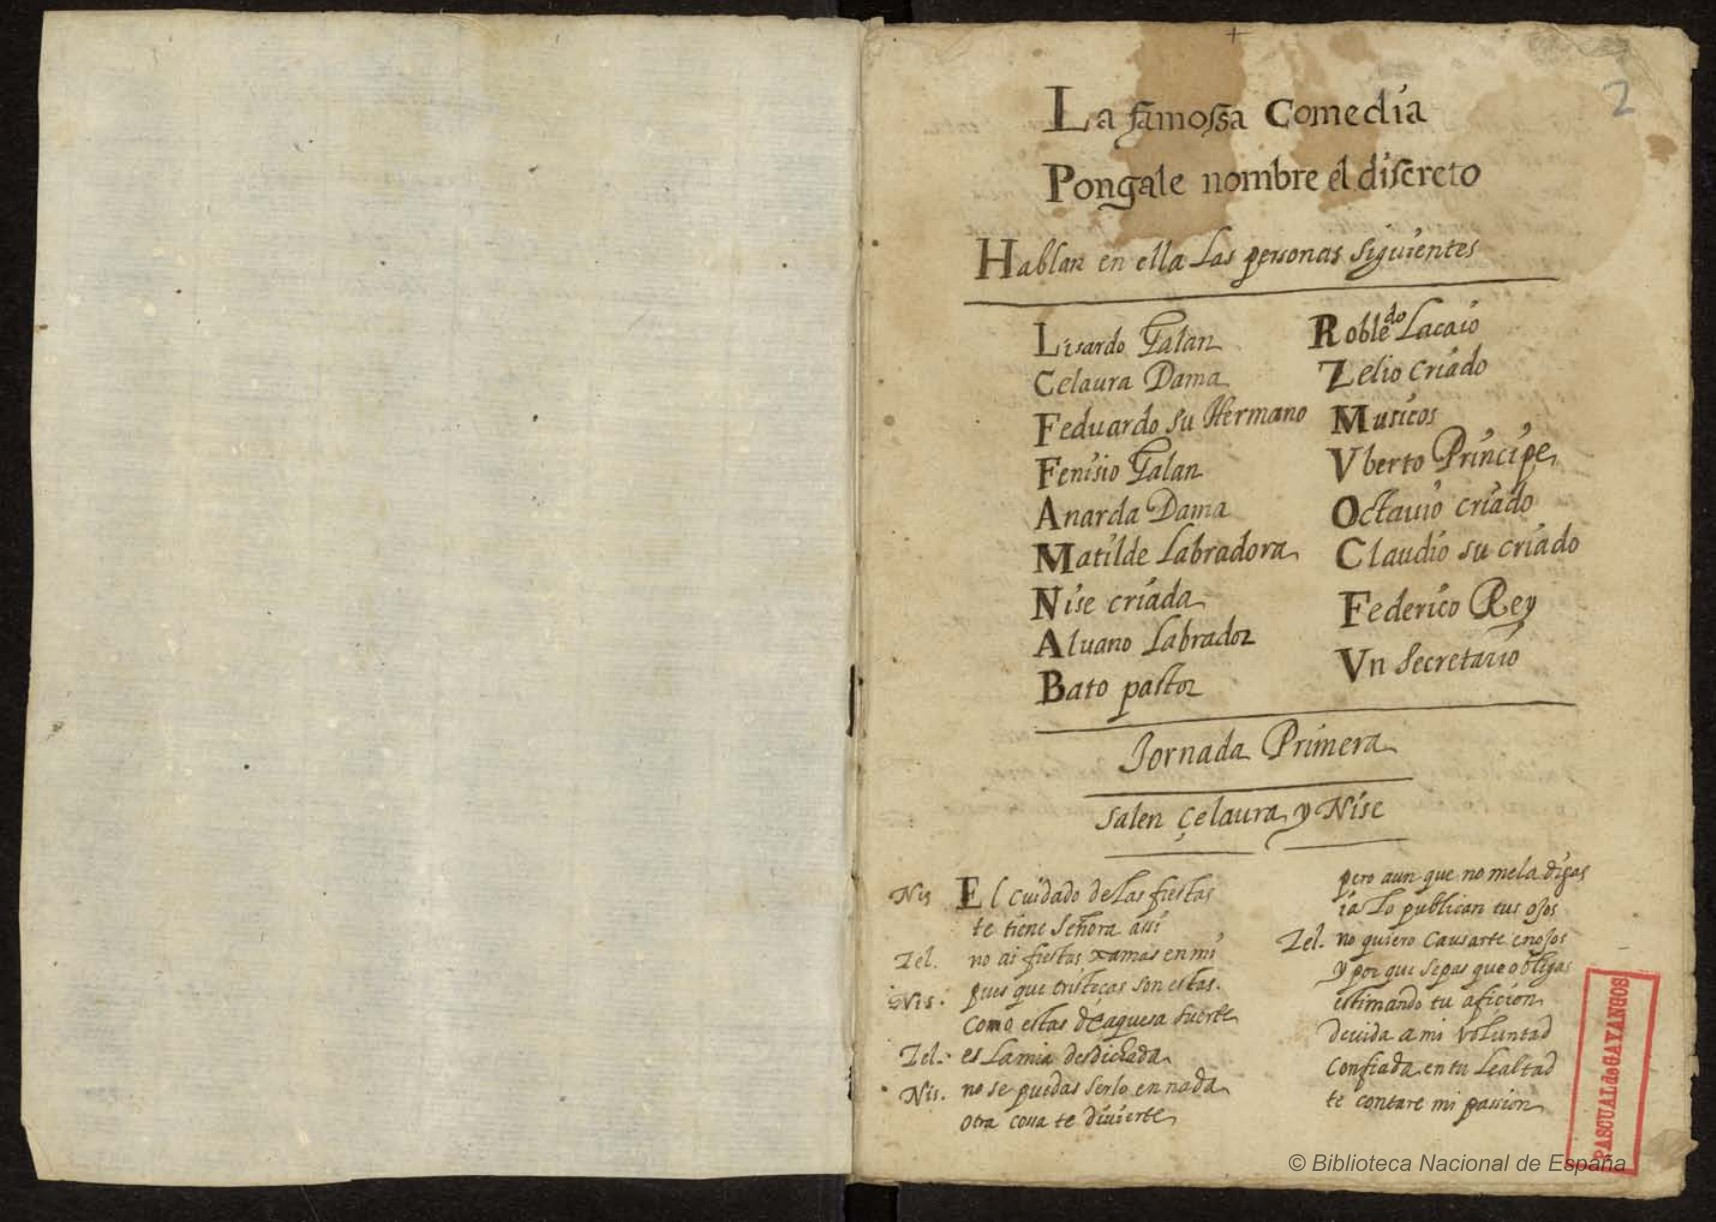 +
2
La famossa Comedia
Pongale nombre el discreto
Hablan en ella Las personas siguientes
Lisardo Galan
Celaura Dama
Feduardo su Hermano
Fenisio Galan
Anarda Dama
Matilde Labradora
Nise criada
Aluano Labrador
Bato pastor
Robledo Lacaio
Zelio criado
Musicos
Vberto Principe
Octauio criado
Claudio su criado
Federico Rey
Vn Secretario
Jornada Primera
Salen Çelaura y Nise
Nis El cuidado de Las fiestas
te tiene Señora assi
Zel. no ai fiestas xamas en mi
pues que tristeças son estas.
Nis. Como estas de aquesa suerte
Zel. es La mia desdichada
Nis. no se puedas serlo en nada
otra cossa te diuierte
pero aun que no me la digas
ia Lo publican tus ojos
Zel. no quiero Causarte enojos
y por que sepas que obligas
estimando tu aficion
deuida a mi Voluntad
Confiada en tu Lealtad
te contare mi passion
PASCUAL de GAYANGOS
© Biblioteca Nacional de España